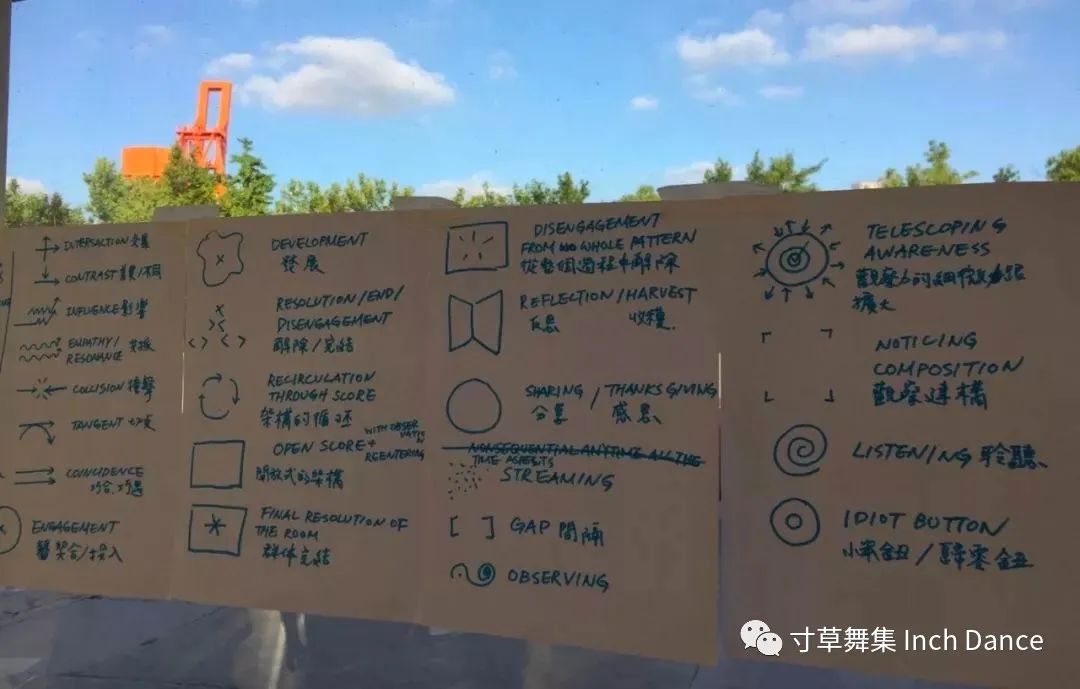 INTERSACTION 交集
CONTRAST 異/不同
INFLUENCE 影響
EMPATHY/
RESONANCE
COLLISION 撞擊
TANGENT 切点
COINCIDENCE
巧合.巧遇
ENGAGEMENT
契合/投入
DEVELOPMENT
發展
RESOLUTION/END/
DISENGAGEMENT
解除/完結
RECIRCULATION
THROUGH SCORE
架構的循环
OPEN SCORE+
WITH OBSERVATION
REENTERING
開放式的架構
FINAL RESOLUTION OF
THE ROOM
群体完結
DISENGAGEMENT
FROM WHOLE PATTERN
從整個過程中解除
REFLECTION/HARVEST
反思 收穫
SHARING / THANKSGIVING
分享 / 感恩
NONSEQUENTIAL ANYTIME ALL THE
TIME ASPECTS
STREAMING
[ ] GAP 間隔
OBSERVING
TELESCOPING
AWARENESS
觀察力的細微
擴大
NOTICING
COMPOSITION
觀察建構
LISTENING 聆聽
IDIOT BUTTON
小笨鈕/歸零鈕
寸草舞集 Inch Dance